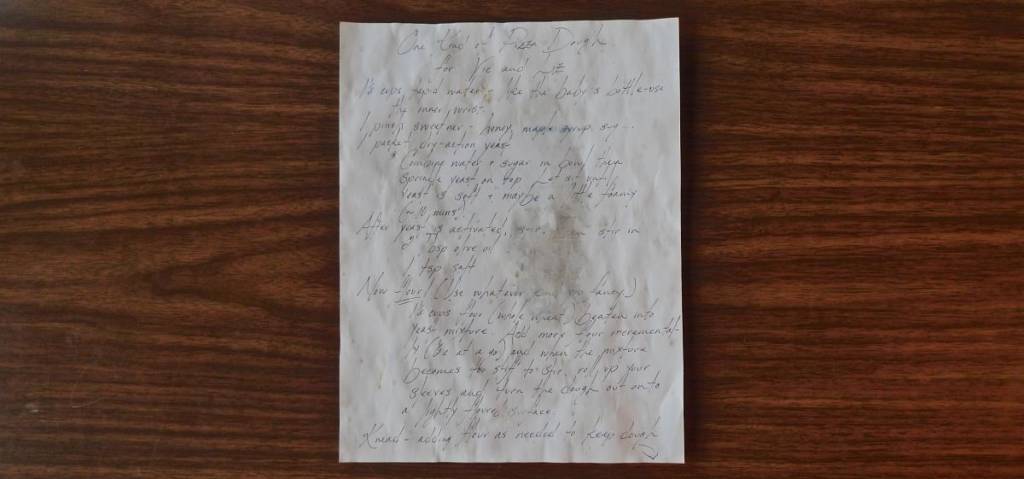 One Kind of Pizza Dough
for and Liz
1½ cups tepid water - like the baby's bottle-use
the inner wrist.
1 pinch sweetner - honey, maple syrup
1 packet dry-action yeast
* Combine water + sugar in bowl then
sprinkle yeast on top. Let sit until
yeast is soft + maybe a little foamy
(~10 mins).
After yeast is activated, stir. stir in
2 Tbsp olive oil
1 tsp salt
Now flour! (Use whatever kind you fancy.)
1½ cups flour (whole wheat) beaten into
yeast mixture. Add more flour incremental-
ly (at a ) and when the mixture
becomes too stiff to stir, roll up your
sleeves and turn the dough out onto
a lightly floured surface.
Knead - adding flour as needed to keep dough